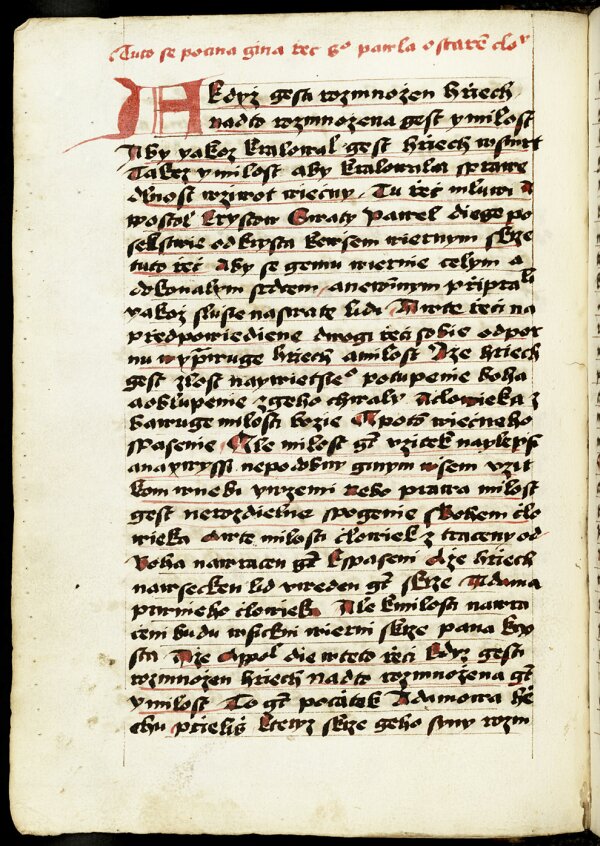 Tuto se pocina gina rzec S° pawla o starē clo°
A kdyz gest rozmnozen hrziech
nadto rozmnozena gest y milost
Aby yakoz kralowal gest hrziech w smrt
Takez y milost aby kralowala sprawe
dlnost w ziwot wieczny Tu rzec mluwi A
postol krystow Swaty Pawel diege po
selstwie od krysta k wsem wiernym skrze
tuto rzec Aby se gemu wiernie celym a
dokonalym srdcem a newinnym
yakoz slusie na swate lidi A w te rzeci na
przedpowiediene dwogi rzeci sobie odpor
nu hrziech a milost Aze hrziech
gest zlost naywietsie° potupenie boha
a obklupenie z geho chwaly A clowieka z
baruge milosti bozie A poto wiecneho
spasenie Ale milost gt vzitek naylepss
a naywyssi nepodobny ginym wsem vzit
kom w nebi y w zemi Nebo prawa milost
gest nerozdielne spogenie s bohem clo
wieka A w te milosti clowiek z traceny od
boha nawracen gt k spaseni Aze hrziech
nawsecken lid vweden gt skrze Adama
prwnieho clowieka Ale k milosti nawra
ceni budu wsickni wierni skrze pana kry
sta Aze Appol die w teto rzeci kdyz gest
rozmnozen hrziech nadto rozmnozena gt
y milost To gt pocatek Adamowa hrze
chu prielis kteryz skrze geho syny rozm